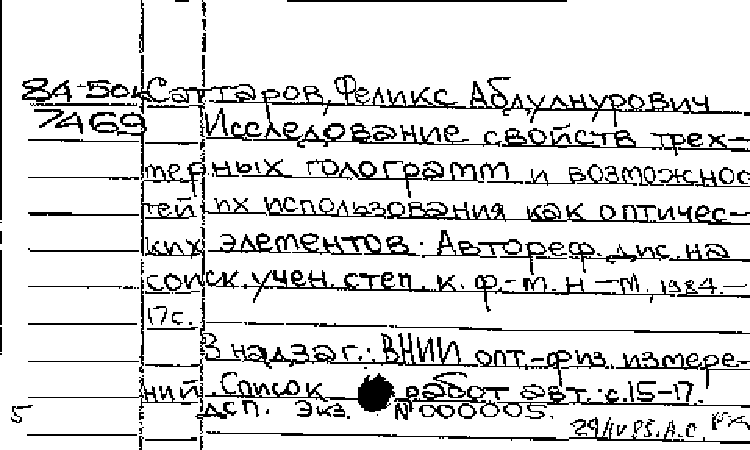 84-50к Саттаров, Феликс Абдулнурович
7469 Исследование свойств трех-
мерных голограмм и возможнос
тей их использования как оптичес-
ких элементов: Автореф. дис. на
соиск. учен. степ. к. ф.-м. н - М., 1984.-
17с.
В надзаг.: ВНИИ опт.-физ. измере-
ний. Список работ авт.: с.15-17.
ДСП. Экз. № 000005.
5